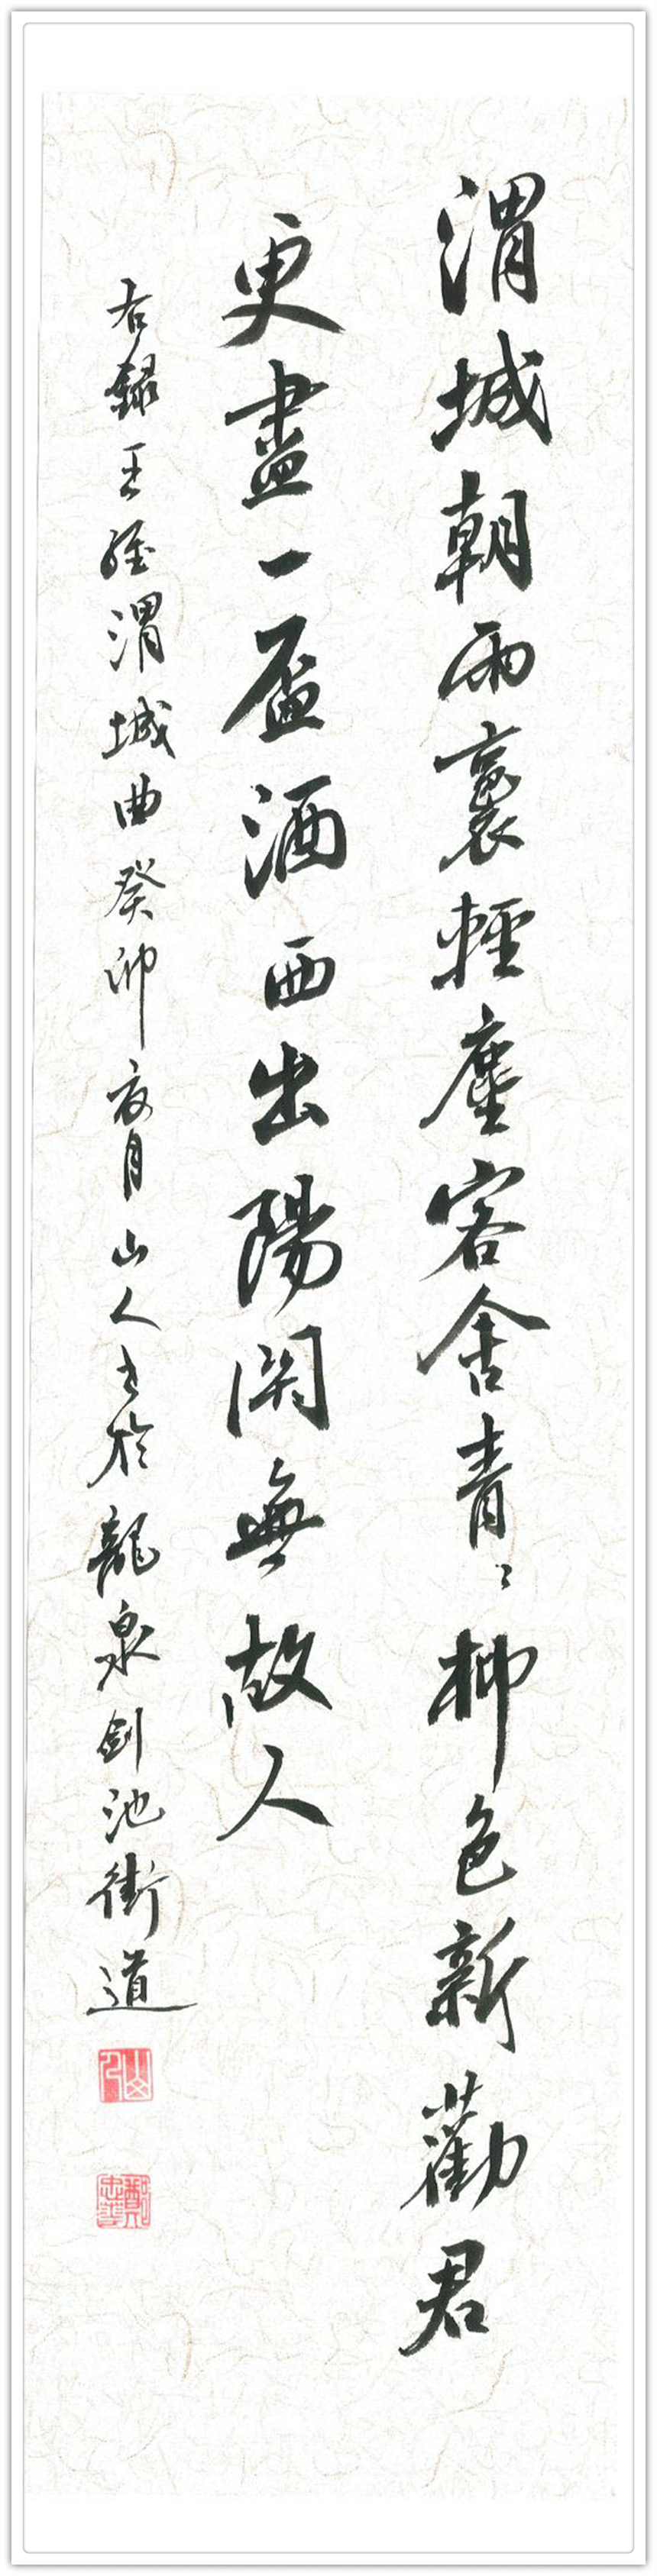 渭城朝雨裛輕塵客舍青〻柳色新勸君
更盡一盃酒西出陽關無故人
右錄王維渭城曲癸卯夏月山人书於龍泉劍池街道